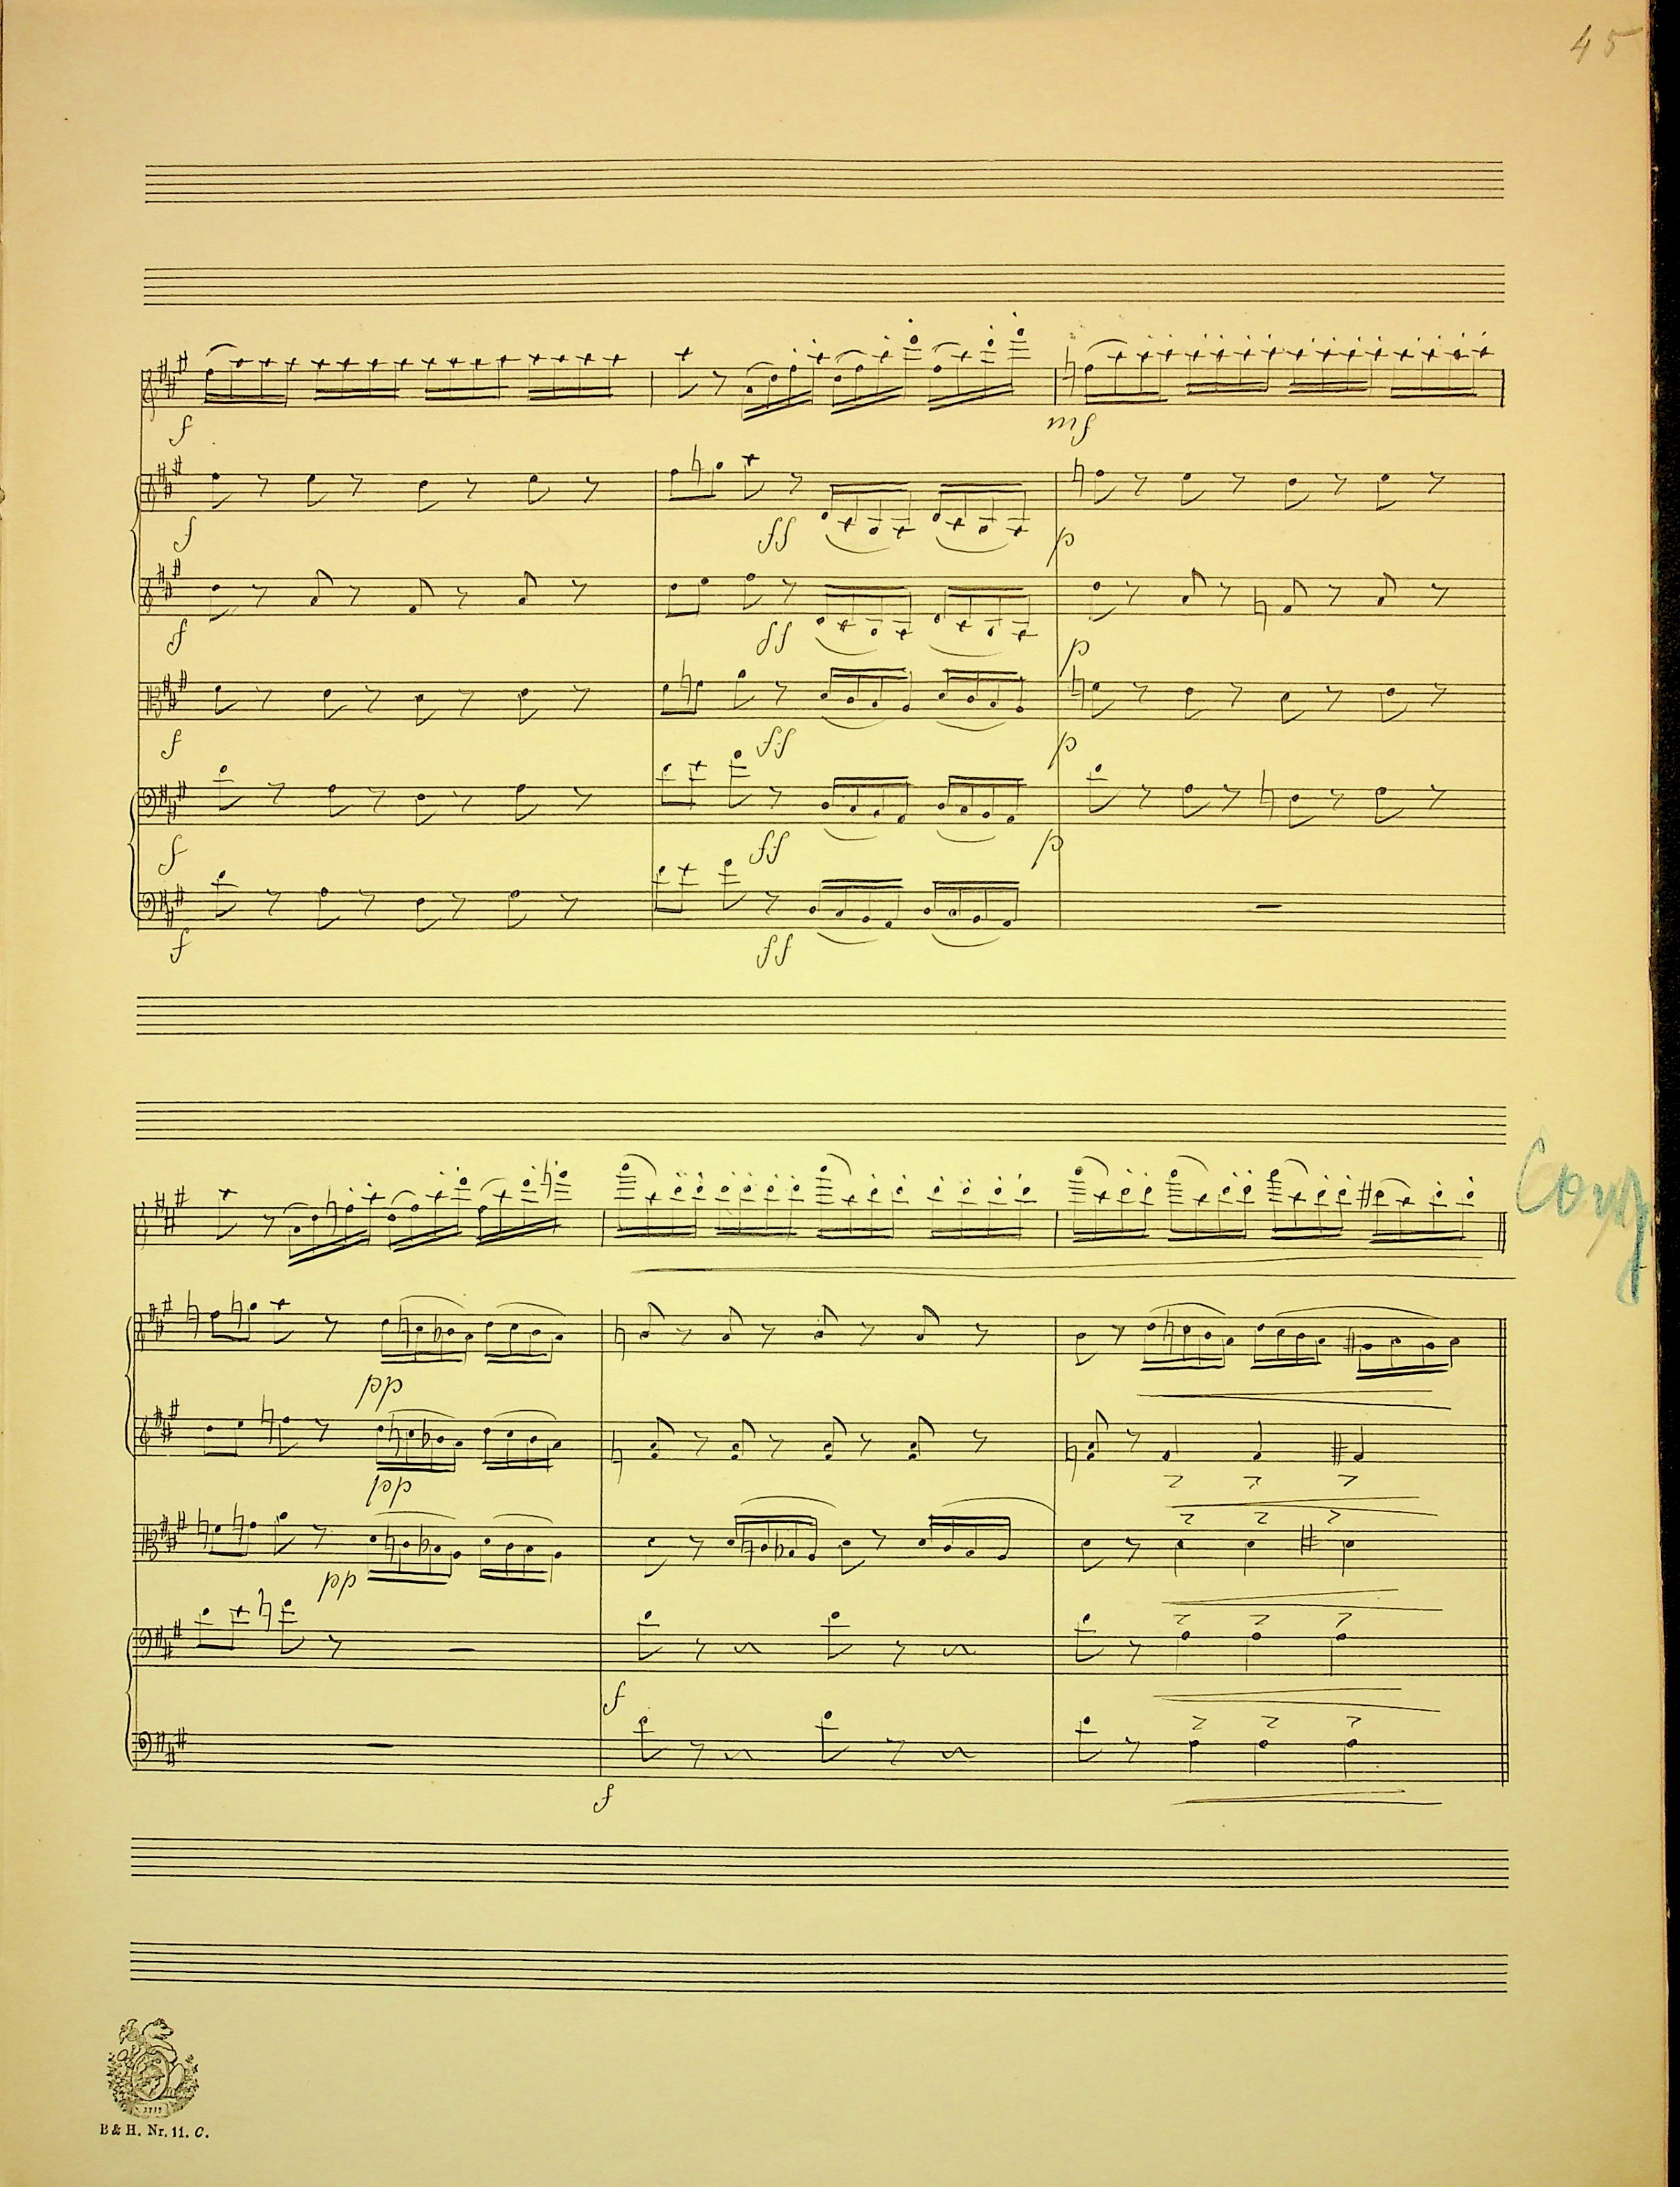 45
f
mf
f
ff
p
f
ff
p
f
ff
p
f
ff
p
f
ff
pp
pp
pp
f
f
B & H. Nr. 11. C.